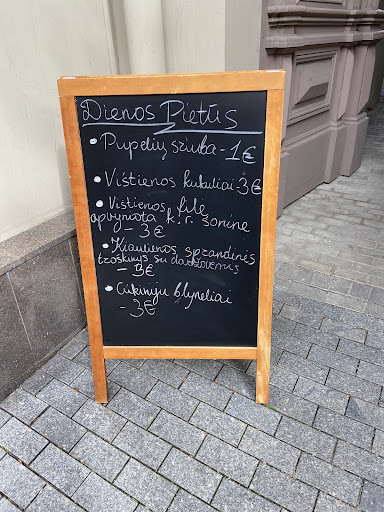 Dienos Pietūs
• Pupelių sriuba - 1€
• Vištienos kukuliai - 3€
• Vištienos filė
apvyniota k. r. šonine
- 3€
• Kiaulienos sprandinės
troškinys su daržovėmis
- 3€
• Cukinijų blyneliai
- 3€